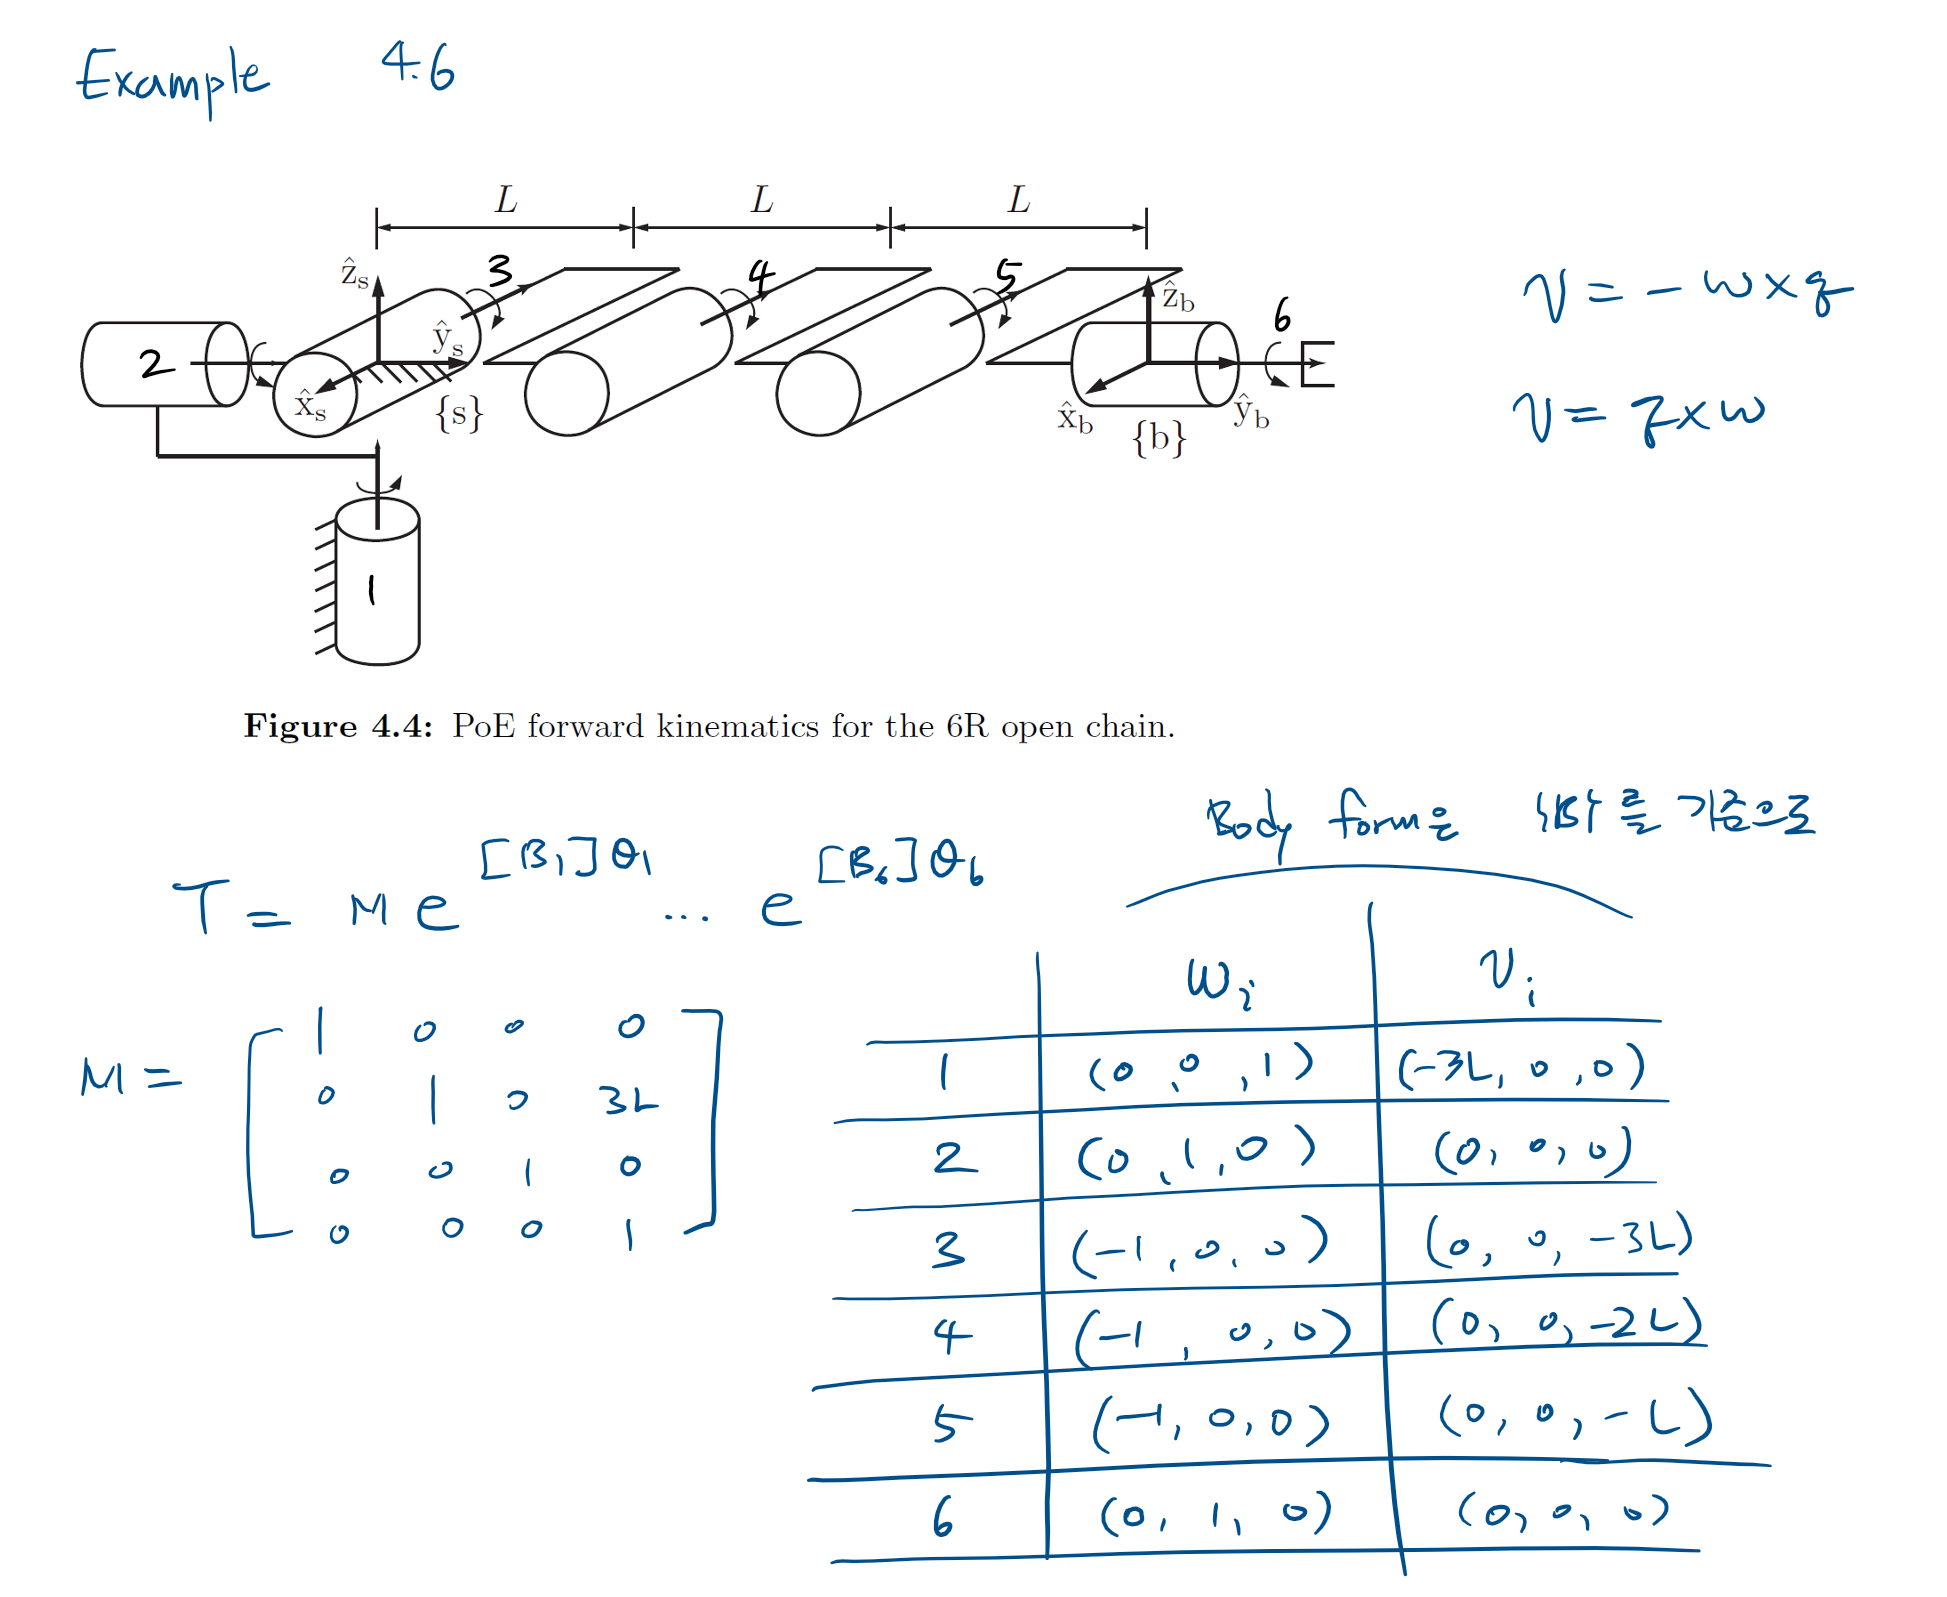 Example 4.6
L L L
ẑs 3 4 5 ẑb 6
2 ŷs
x̂s {s} x̂b {b} ŷb
1
v = - w × q
v = q × w
Figure 4.4: PoE forward kinematics for the 6R open chain.
Body form은 {B}를 기준으로
T = M e^[B₁]θ₁ ... e^[B₆]θ₆
wi vi
M =
1 0 0 0
0 1 0 3L
0 0 1 0
0 0 0 1
1 (0, 0, 1) (-3L, 0, 0)
2 (0, 1, 0) (0, 0, 0)
3 (-1, 0, 0) (0, 0, -3L)
4 (-1, 0, 0) (0, 0, -2L)
5 (-1, 0, 0) (0, 0, -L)
6 (0, 1, 0) (0, 0, 0)